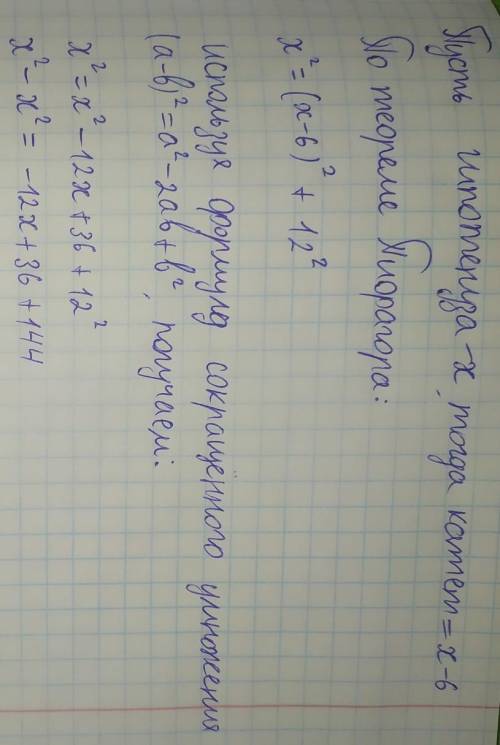 Пусть гипотенуза - x, тогда катет = x-6
По теореме Пифагора:
x² = (x-6)² + 12²
используя формулу сокращённого умножения
(a-b)² = a² - 2ab + b², получаем:
x² = x² - 12x + 36 + 12²
x² - x² = -12x + 36 + 144